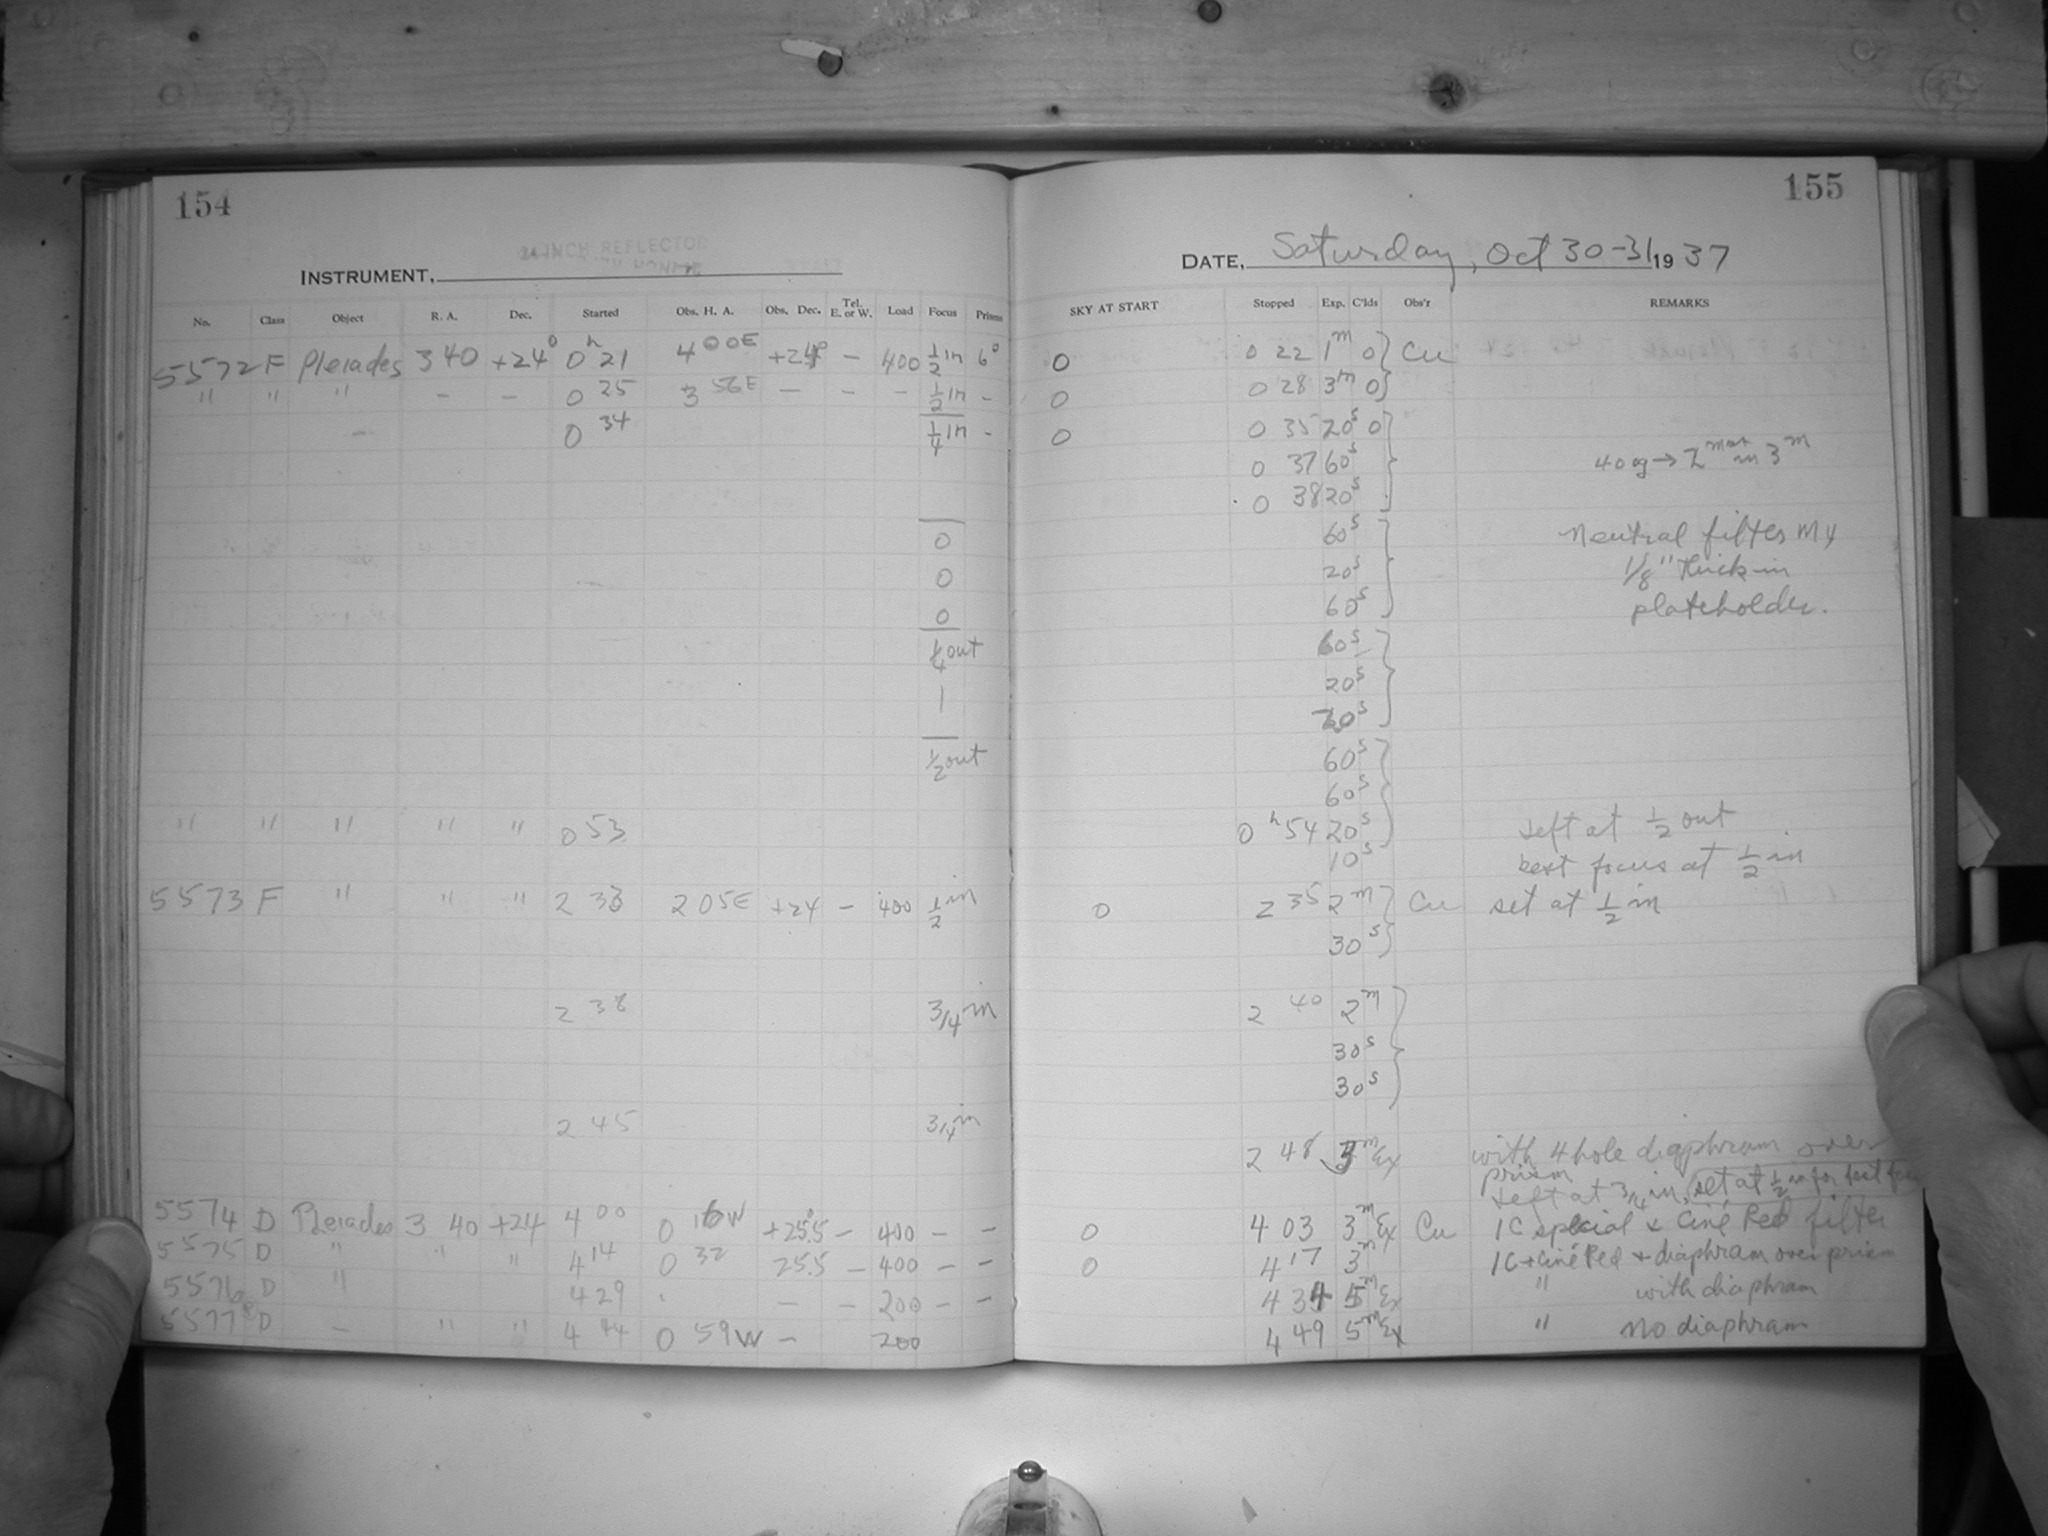 154
INSTRUMENT,
No. Class Object R. A. Dec. Started Obs. H. A. Obs. Dec. Tel. E. or W. Load Focus Prisms
5572 F Pleiades 3 40 +24° 0ʰ 21 4 00E +24° — 400 ½ in 6°
" " " - - 0 25 3 56E — — - ½ in -
— 0 34 ¼ in -
0
0
0
¼ out
|
½ out
" " " " " 0 53
5573 F " " " 2 33 2 05E +24 — 400 ½ in
2 38 3/4 in
2 45 3/4 in
5574 D Pleiades 3 40 +24 4 00 0 16W +25.5 — 400 — —
5575 D " " " 4 14 0 32 25.5 — 400 — —
5576 D " 4 29 — — 200 — —
5577 D — " " 4 44 0 59W — 200
155
DATE, Saturday, Oct 30-31 1937
SKY AT START Stopped Exp. C'lds Obs'r REMARKS
0 0 22 1ᵐ 0 Cu
0 0 28 3ᵐ 0
0 0 35 20ˢ 0
0 37 60ˢ 40 og → 2 in 3ᵐ
0 38 20ˢ
60ˢ Neutral filter M4
20ˢ 1/8" thick in
60ˢ plateholder.
60ˢ
20ˢ
20ˢ
60ˢ
60ˢ
0ʰ 54 20ˢ left at ½ out
10ˢ best focus at ½ in
0 2 35 2ᵐ Cu set at ½ in
30ˢ
2 40 2ᵐ
30ˢ
30ˢ
2 48 3ᵐ Ex with 4 hole diaphram over
prism
left at 3/4 in, set at ½ in for best
0 4 03 3ᵐ Ex Cu 1C special + Ciné Red filter
0 4 17 3ᵐ 1C + Ciné Red + diaphram over prism
4 34 5ᵐ Ex " with diaphram
4 49 5ᵐ Ex " No diaphram